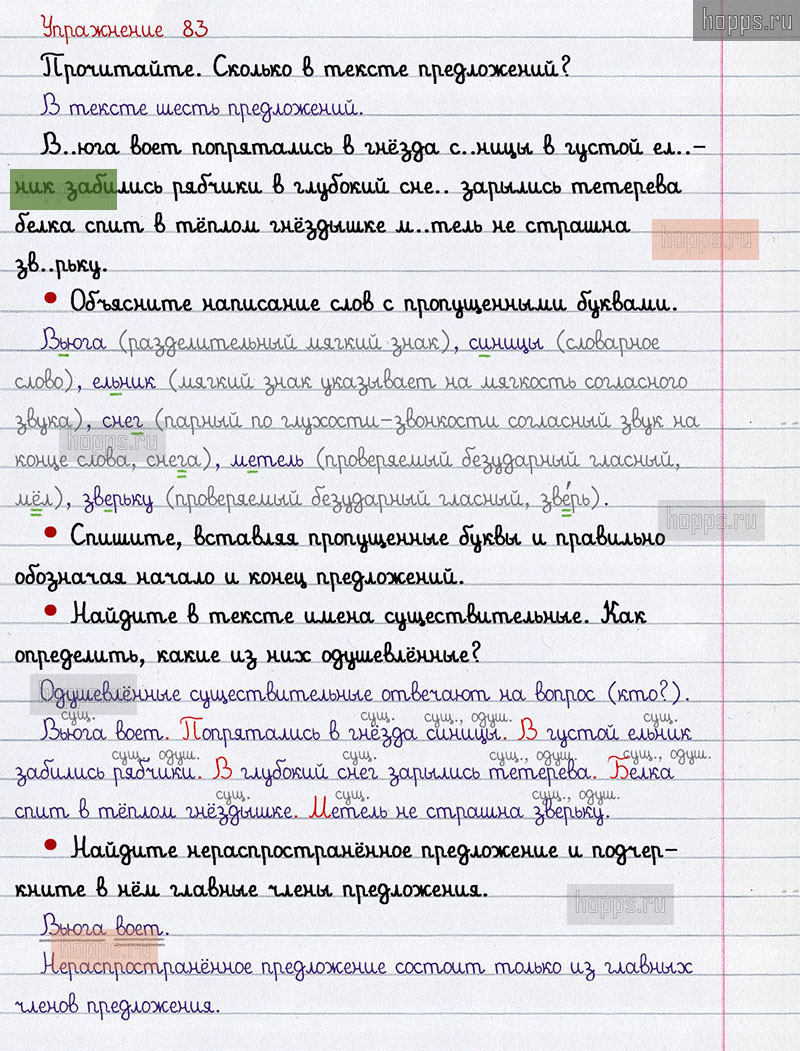 hopps.ru
Упражнение 83
Прочитайте. Сколько в тексте предложений?
В тексте шесть предложений.
В..юга воет попрятались в гнёзда с..ницы в густой ел..-
ник забились рябчики в глубокий сне.. зарылись тетерева
белка спит в тёплом гнёздышке м..тель не страшна
hopps.ru
зв..рьку.
• Объясните написание слов с пропущенными буквами.
Вьюга (разделительный мягкий знак), синицы (словарное
слово), ельник (мягкий знак указывает на мягкость согласного
звука), снег (парный по глухости-звонкости согласный звук на
hopps.ru
конце слова, снега), метель (проверяемый безударный гласный,
мёл), зверьку (проверяемый безударный гласный, зве́рь).
hopps.ru
• Спишите, вставляя пропущенные буквы и правильно
обозначая начало и конец предложений.
• Найдите в тексте имена существительные. Как
определить, какие из них одушевлённые?
Одушевлённые существительные отвечают на вопрос (кто?).
сущ. сущ. сущ., одуш. сущ.
Вьюга воет. Попрятались в гнёзда синицы. В густой ельник
сущ., одуш. сущ. сущ., одуш. сущ., одуш.
забились рябчики. В глубокий снег зарылись тетерева. Белка
сущ. сущ. сущ., одуш.
спит в тёплом гнёздышке. Метель не страшна зверьку.
• Найдите нераспространённое предложение и подчер-
кните в нём главные члены предложения.
hopps.ru
Вьюга воет.
hopps.ru
Нераспространённое предложение состоит только из главных
членов предложения.